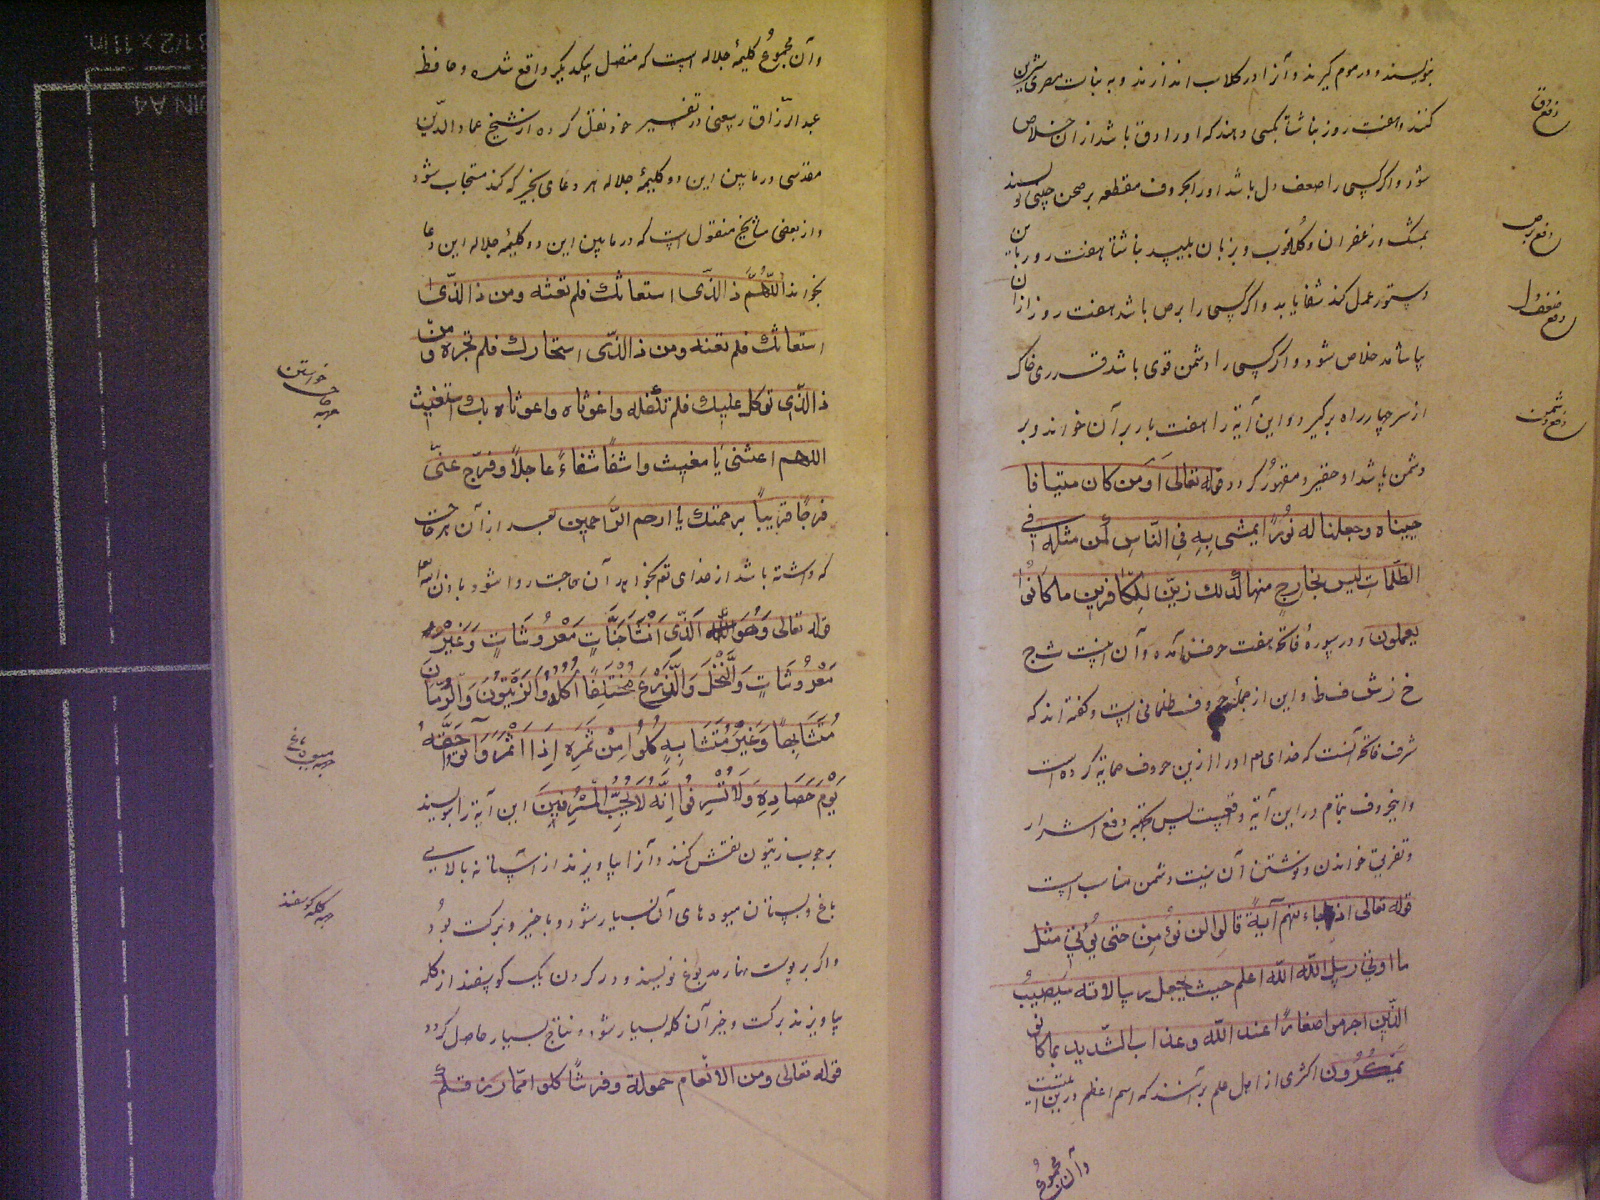 بنویسند و در موم گیرند و آنرا در گلاب اندازند و به نبات مصری شیرین
کنند و هفت روز ناشتا بکسی دهند که او را دق باشد از ان خلاص
شود و اگر کسی را ضعف دل باشد اورا بحروف مقطعه بر صحن چینی نویسند
بمشک و زعفران و گلاب و بزبان بلیسد ناشتا هفت روز باین
دستور عمل کند شفا یابد و اگر کسی را برص باشد هفت روز از ان
بیاشامد خلاص شود و اگر کسی را دشمن قوی باشد قدری خاک
از سر چهار راه برگیرد و این آیة را هفت بار بر آن خواند و بر
دشمن پاشد او حقیر و مقهور گردد قوله تعالی اَوَمَن کان میتا فا
حییناه وجعلنا له نُورًا یمشی بِهِ فِی النّاسِ کمن مثله فی
الظلمات لیس بخارج منها کذلك زیّن للکافرین ما کانوا
یعملون و در سورهٔ فاتحه هفت حرف نیامده و آن اینست ث ج
خ ز ش ف ظ و این از جملهٔ حروف ظلمانی است و گفته اند که
شرف فاتحه آنست که خدای تع اورا ازین حروف حمایة کرده است
و اینحروف تمام در این آیة واقعیست پس بجهة دفع اشرار
و تفریق خواندن و نوشتن آن بنیت دشمن مناسب است
قوله تعالی اذا جاءتهم آیةً قالوا لن نؤمِن حتی نُؤتی مثل
ما اوتی رسل اللّه اللّه اعلم حیث یجعل رسالاته سَیُصیبُ
الذّین اجرموا صغارًا عند اللّه وعذاب الشّدید بما کانو
یَمکُرُون اکثری از اهل علم برآنند که اسم اعظم درین آیتست
وآن مجموع
دفع دق
دفع برص
دفع ضعف دل
دفع دشمن
وآن مجموع کلیمهٔ جلاله است که متصل بیکدیگر واقع شده و حافظ
عبد الرّزاق ربیعنی در تفسیر خود نقل کرده از شیخ عماد الدّین
مقدسی در مابین این دو کلیمهٔ جلاله هر دعای بخیر که کند مستجاب شود
و از بعضی مشایخ منقول است که در مابین این دو کلیمهٔ جلاله این دعا
بخواند اَللّهُمَّ من ذالذّی استغاثك فلم تغثه ومن ذالذّی
استعانك فلم تعنه ومن ذالذّی استجارك فلم تجره ومن
ذالذّی توکل علیك فلم تکفله واغوثاه واغوثاه بك استغیث
اللهم اغثنی یا مغیث واشفنا شفاءً عاجلاً وفرّج عنّی
فرجًا قریباً برحمتك یا ارحم الرّاحمین بعد از آن هر حاجت
که داشته باشد از خدای تع بخواهد آن حاجت روا شود باذن الله
قوله تعالی وَهُوَ الَّذی اَنْشَأَ جَنَّاتٍ مَعْرُوشَاتٍ وَغَیْرَ
مَعْرُوشَاتٍ وَالنَّخْلَ وَالزَّرْعَ مُخْتَلِفًا اُکُلُهُ وَالزَیْتُونَ وَالرُّمَّانَ
مُتَشَابِهًا وَغَیْرَ مُتَشَابِهٍ کُلُوا مِنْ ثَمَرِهِ إِذَا اَثْمَرَ وَآتُوا حَقَّهُ
یَوْمَ حَصَادِهِ وَلَا تُسْرِفُوا اِنَّهُ لَا یُحِبُّ الْمُسْرِفِینَ این آیة را بنویسند
بر چوب زیتون نقش کنند و آنرا بیاویزند از آستانهٔ بالایی
باغ و بستان میوه های آن بسیار شود و با خیر و برکت بود
واگر بر پوست مدبوغ نویسند و در گردن یک گوسفند از گله
بیاویزند برکت و خیر آن گله بسیار شود و نتاج بسیار حاصل گردد
قوله تعالی ومن الانعام حمولة وفرشًا کلوا ممّا رزقکم
جهة حاجت خواستن
جهة میوه باغ
جهة گله گوسفند
8 1/2 x 11 in.
DIN A4